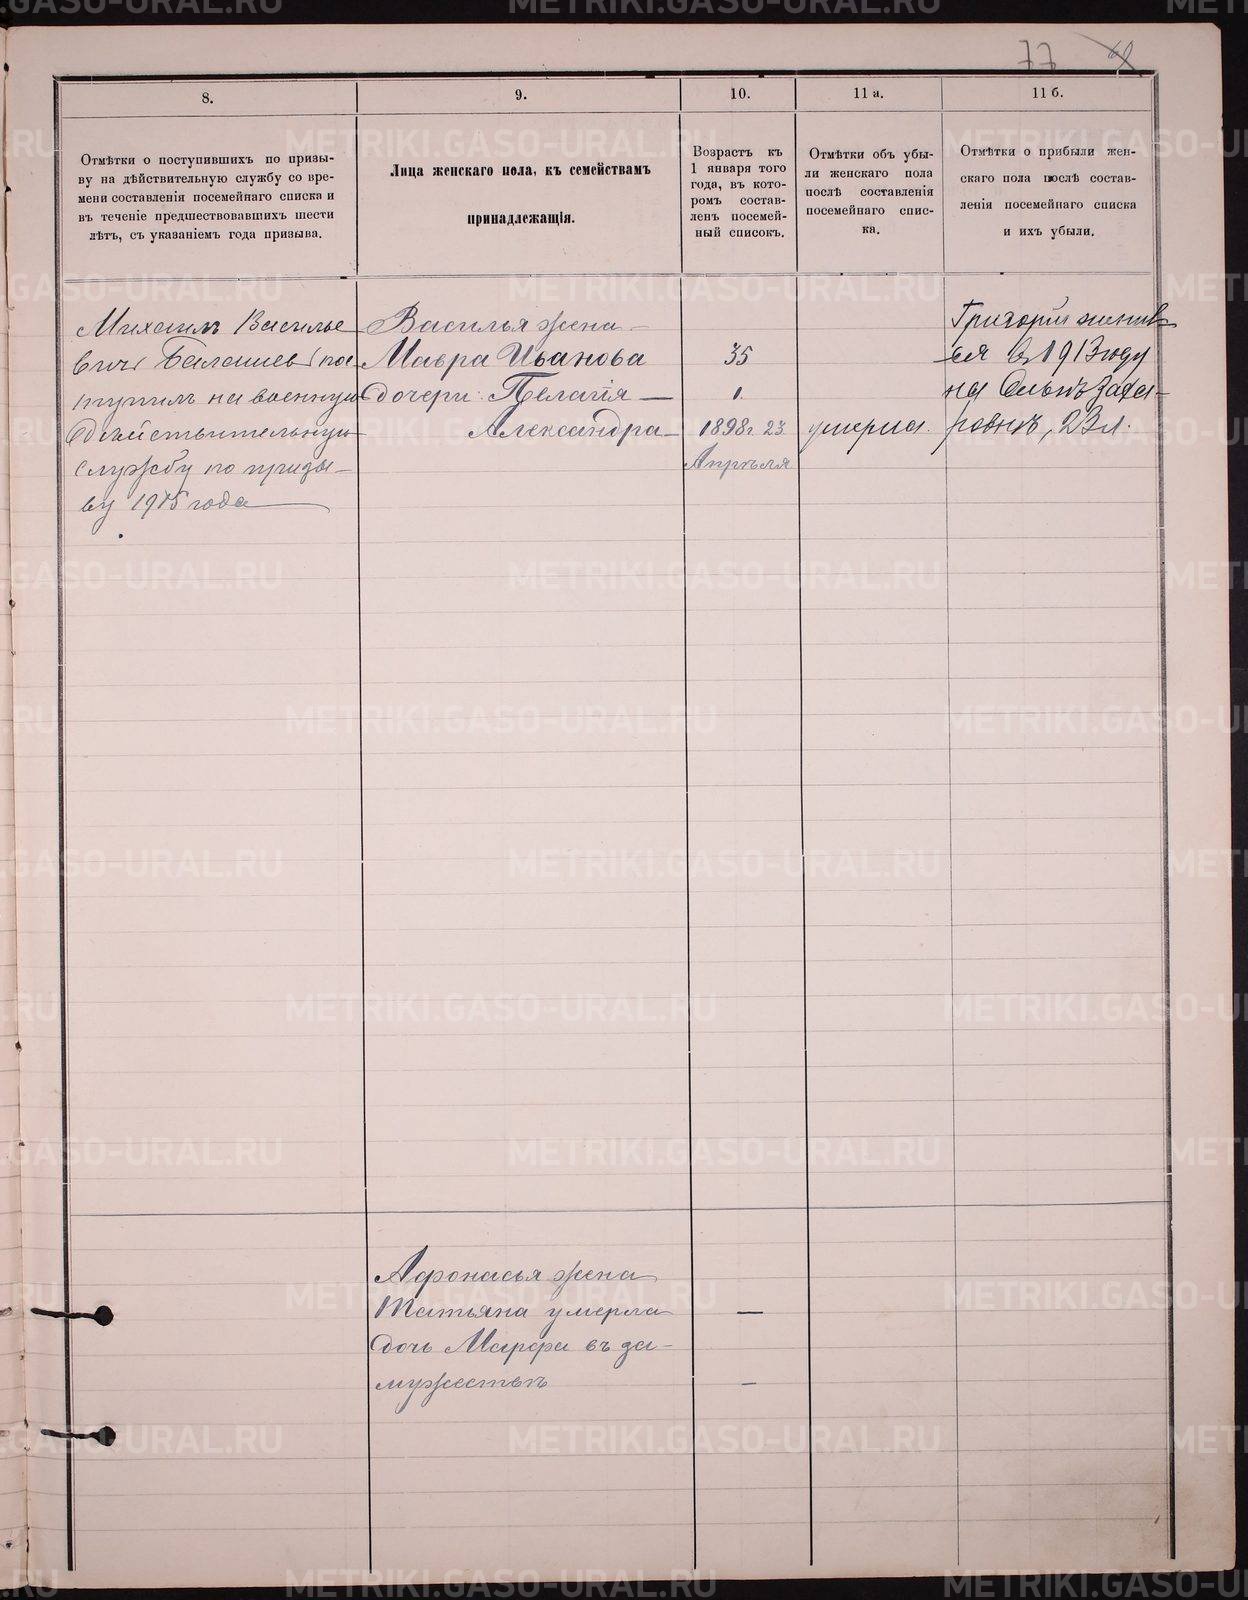 77
8.
9.
10.
11 а.
11 б.
Отмѣтки о поступившихъ по призы-
ву на дѣйствительную службу со вре-
мени составленія посемейнаго списка и
въ теченіе предшествовавшихъ шести
лѣтъ, съ указаніемъ года призыва.
Лица женскаго пола, къ семействамъ
принадлежащія.
Возрастъ къ
1 января того
года, въ кото-
ромъ состав-
ленъ посемей-
ный списокъ.
Отмѣтки объ убы-
ли женскаго пола
послѣ составленія
посемейнаго спис-
ка.
Отмѣтки о прибыли жен-
скаго пола послѣ состав-
ленія посемейнаго списка
и ихъ убыли.
Михаилъ Василье
вичъ Балашевъ пос
тупилъ на военную
дѣйствительную
службу по призы-
ву 1915 года
Василья жена
Мавра Иванова
дочери: Пелагія
Александра
35
1.
1898 г. 23
Апрѣля
умерла.
Григорій женив-
ся въ 1913 году
на Ольгѣ Заха-
ровнѣ, 23 л.
Афонасья жена
Татьяна умерла
дочь Марфа въ за-
мужествѣ
—
—
METRIKI.GASO-URAL.RU